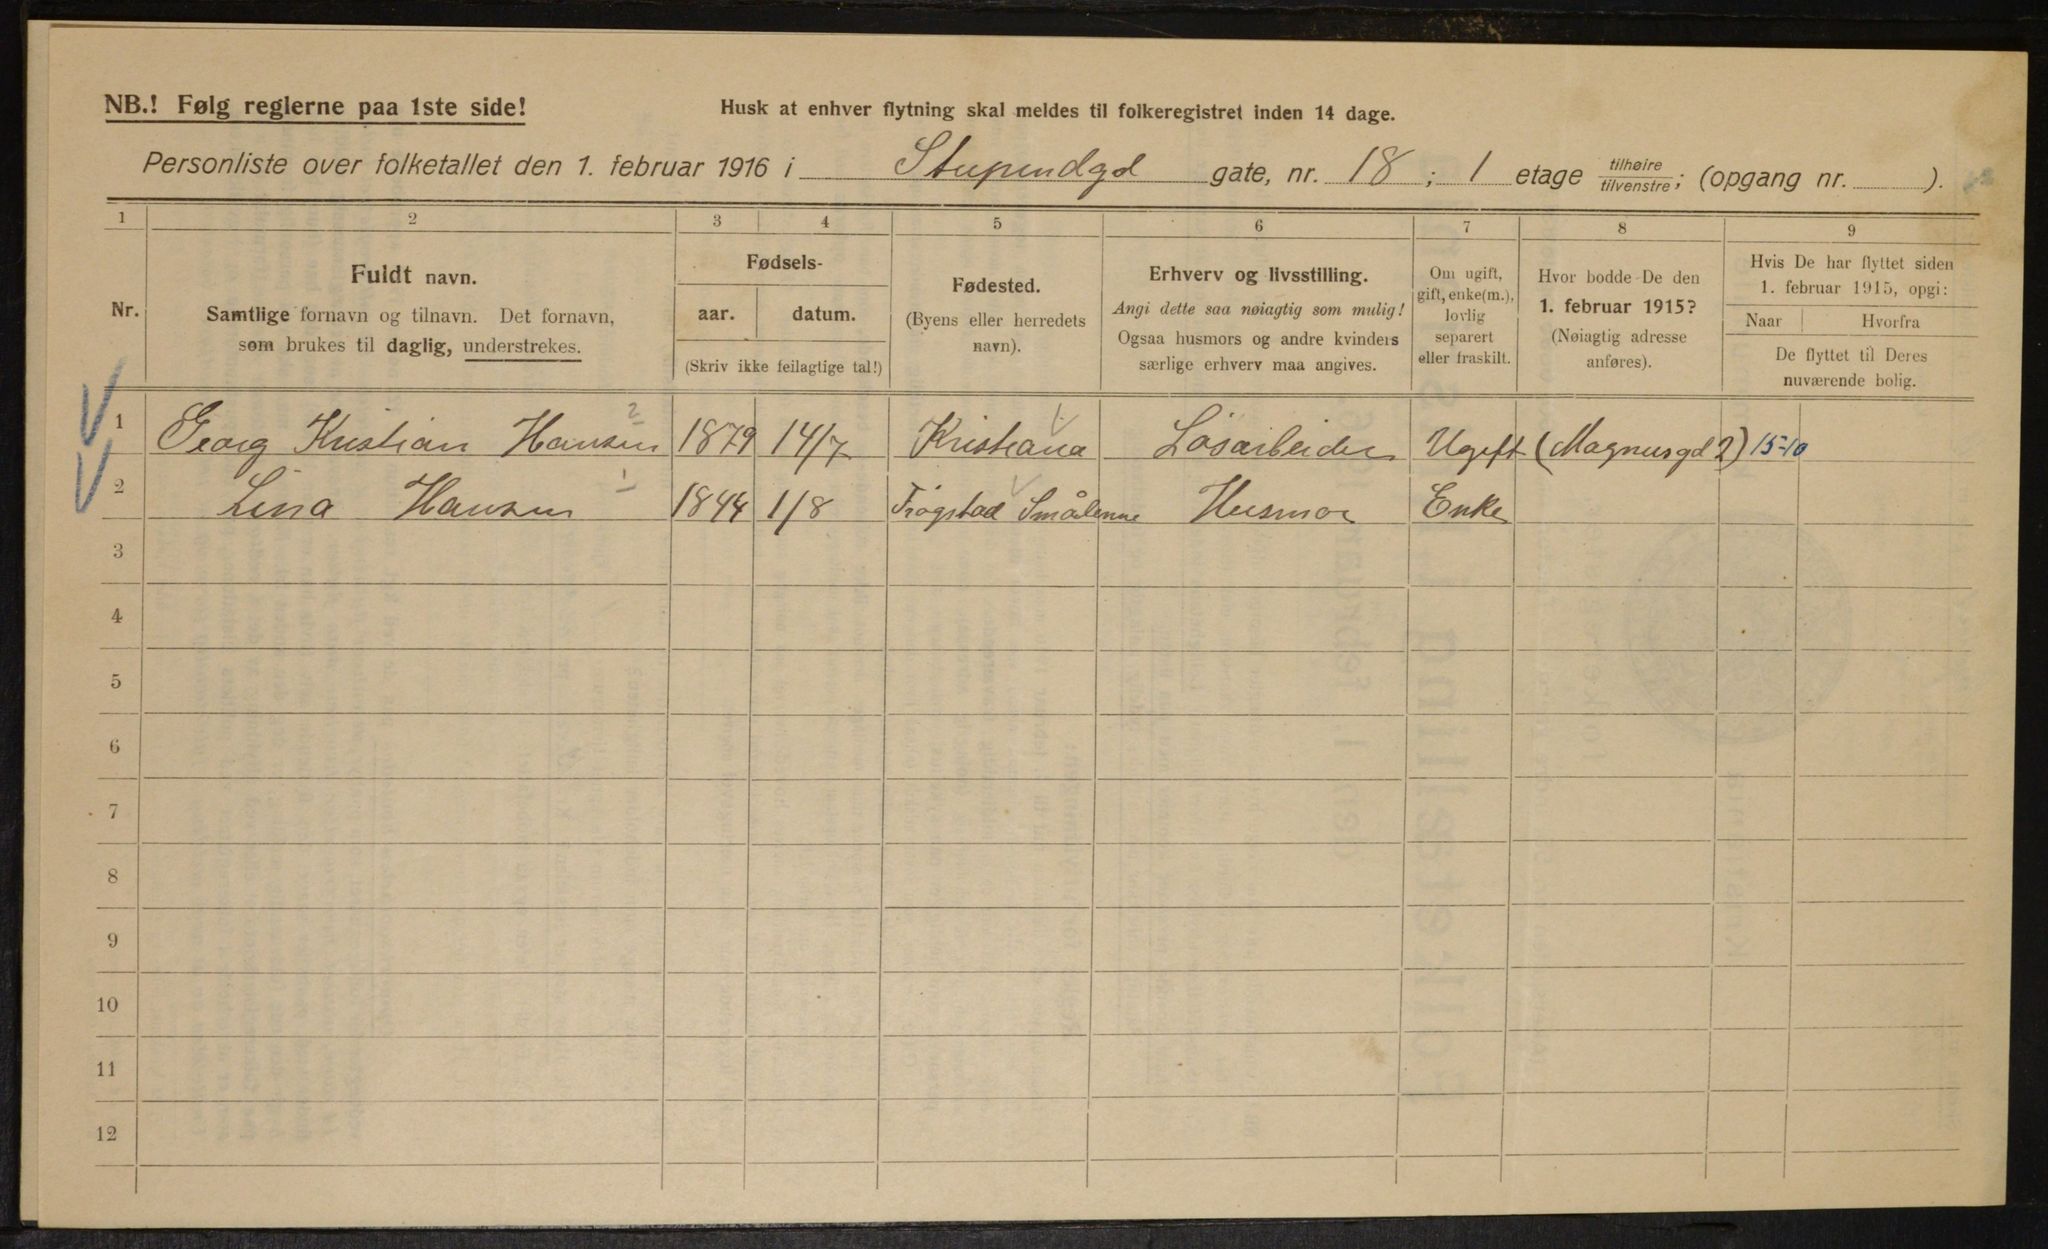 NB.! Følg reglerne paa 1ste side!
Husk at enhver flytning skal meldes til folkeregistret inden 14 dage.
Personliste over folketallet den 1. februar 1916 i Stupendgd gate, nr. 18 ; 1 etage tilhøire tilvenstre; (opgang nr. ).
1 2 3 4 5 6 7 8 9
Nr.
Fuldt navn.
Samtlige fornavn og tilnavn. Det fornavn,
som brukes til daglig, understrekes.
Fødsels-
aar. datum.
(Skriv ikke feilagtige tal!)
Fødested.
(Byens eller herredets
navn).
Erhverv og livsstilling.
Angi dette saa nøiagtig som mulig!
Ogsaa husmors og andre kvinders
særlige erhverv maa angives.
Om ugift,
gift, enke(m.),
lovlig
separert
eller fraskilt.
Hvor bodde De den
1. februar 1915?
(Nøiagtig adresse
anføres).
Hvis De har flyttet siden
1. februar 1915, opgi:
Naar Hvorfra
De flyttet til Deres
nuværende bolig.
1 Georg Kristian Hansen 2 1879 14/7 Kristiana Løsarbeider Ugift (Magnusgd 2) 15-10
2 Lina Hansen 1 1844 1/8 Trøgstad Smålenene Husmor Enke
3
4
5
6
7
8
9
10
11
12